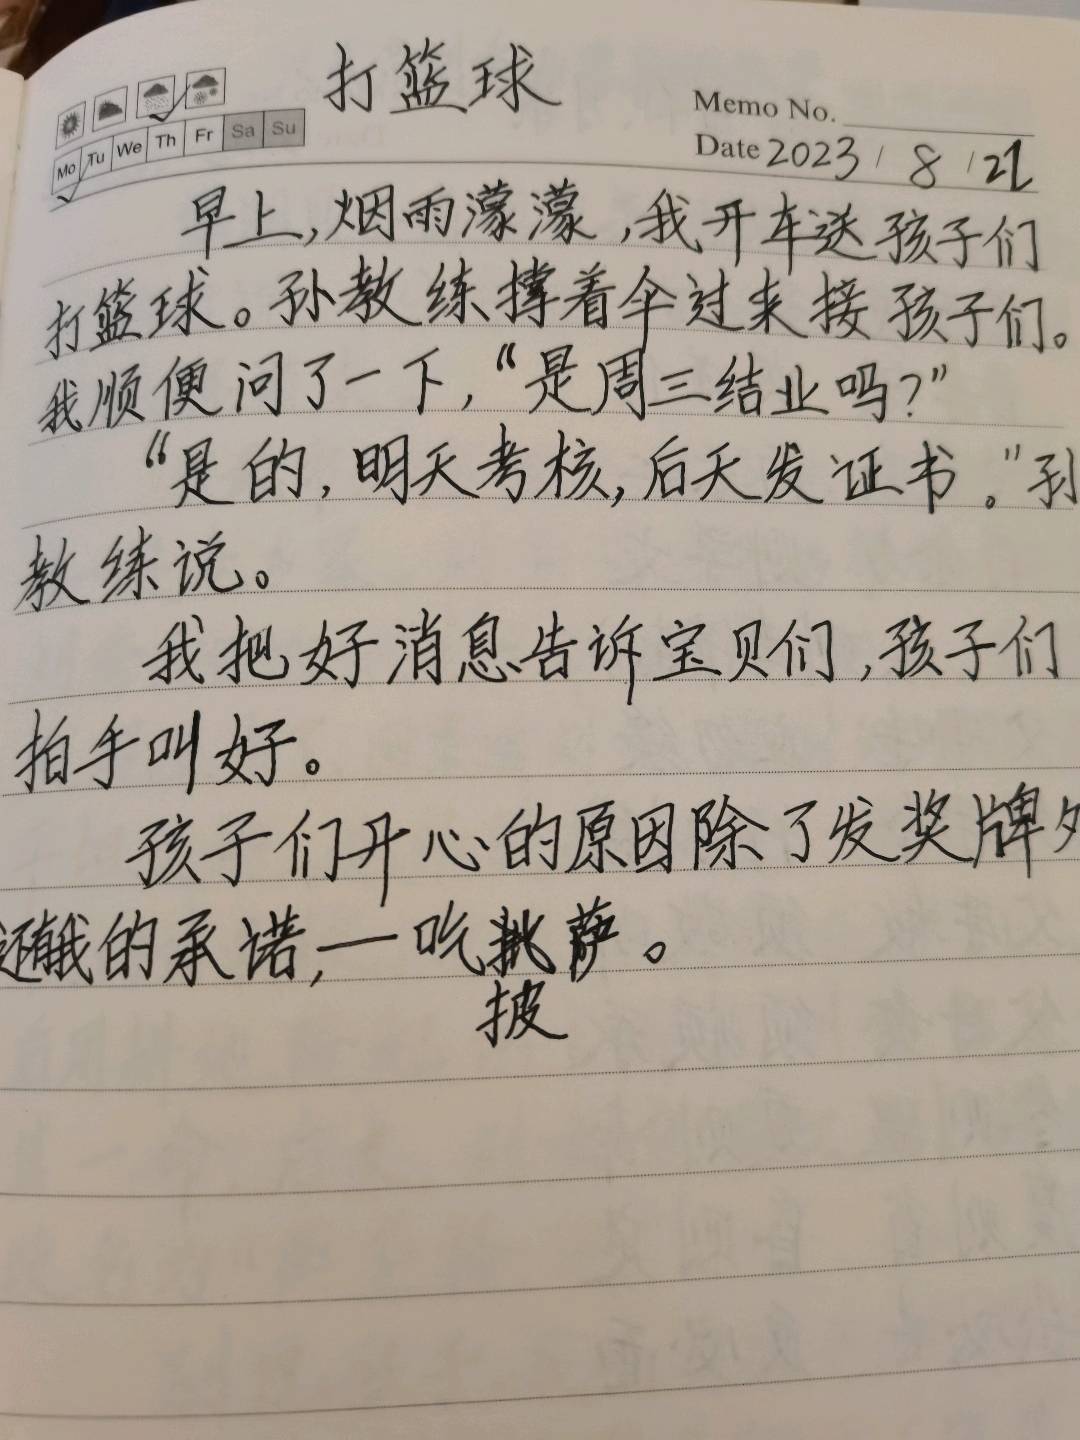 打篮球
Memo No.
Mo Tu We Th Fr Sa Su
Date 2023 / 8 / 21
早上,烟雨濛濛,我开车送孩子们
打篮球。孙教练撑着伞过来接孩子们。
我顺便问了一下,“是周三结业吗?”
“是的,明天考核,后天发证书。”孙
教练说。
我把好消息告诉宝贝们,孩子们
拍手叫好。
孩子们开心的原因除了发奖牌外
还有我的承诺,一吃萨。
披